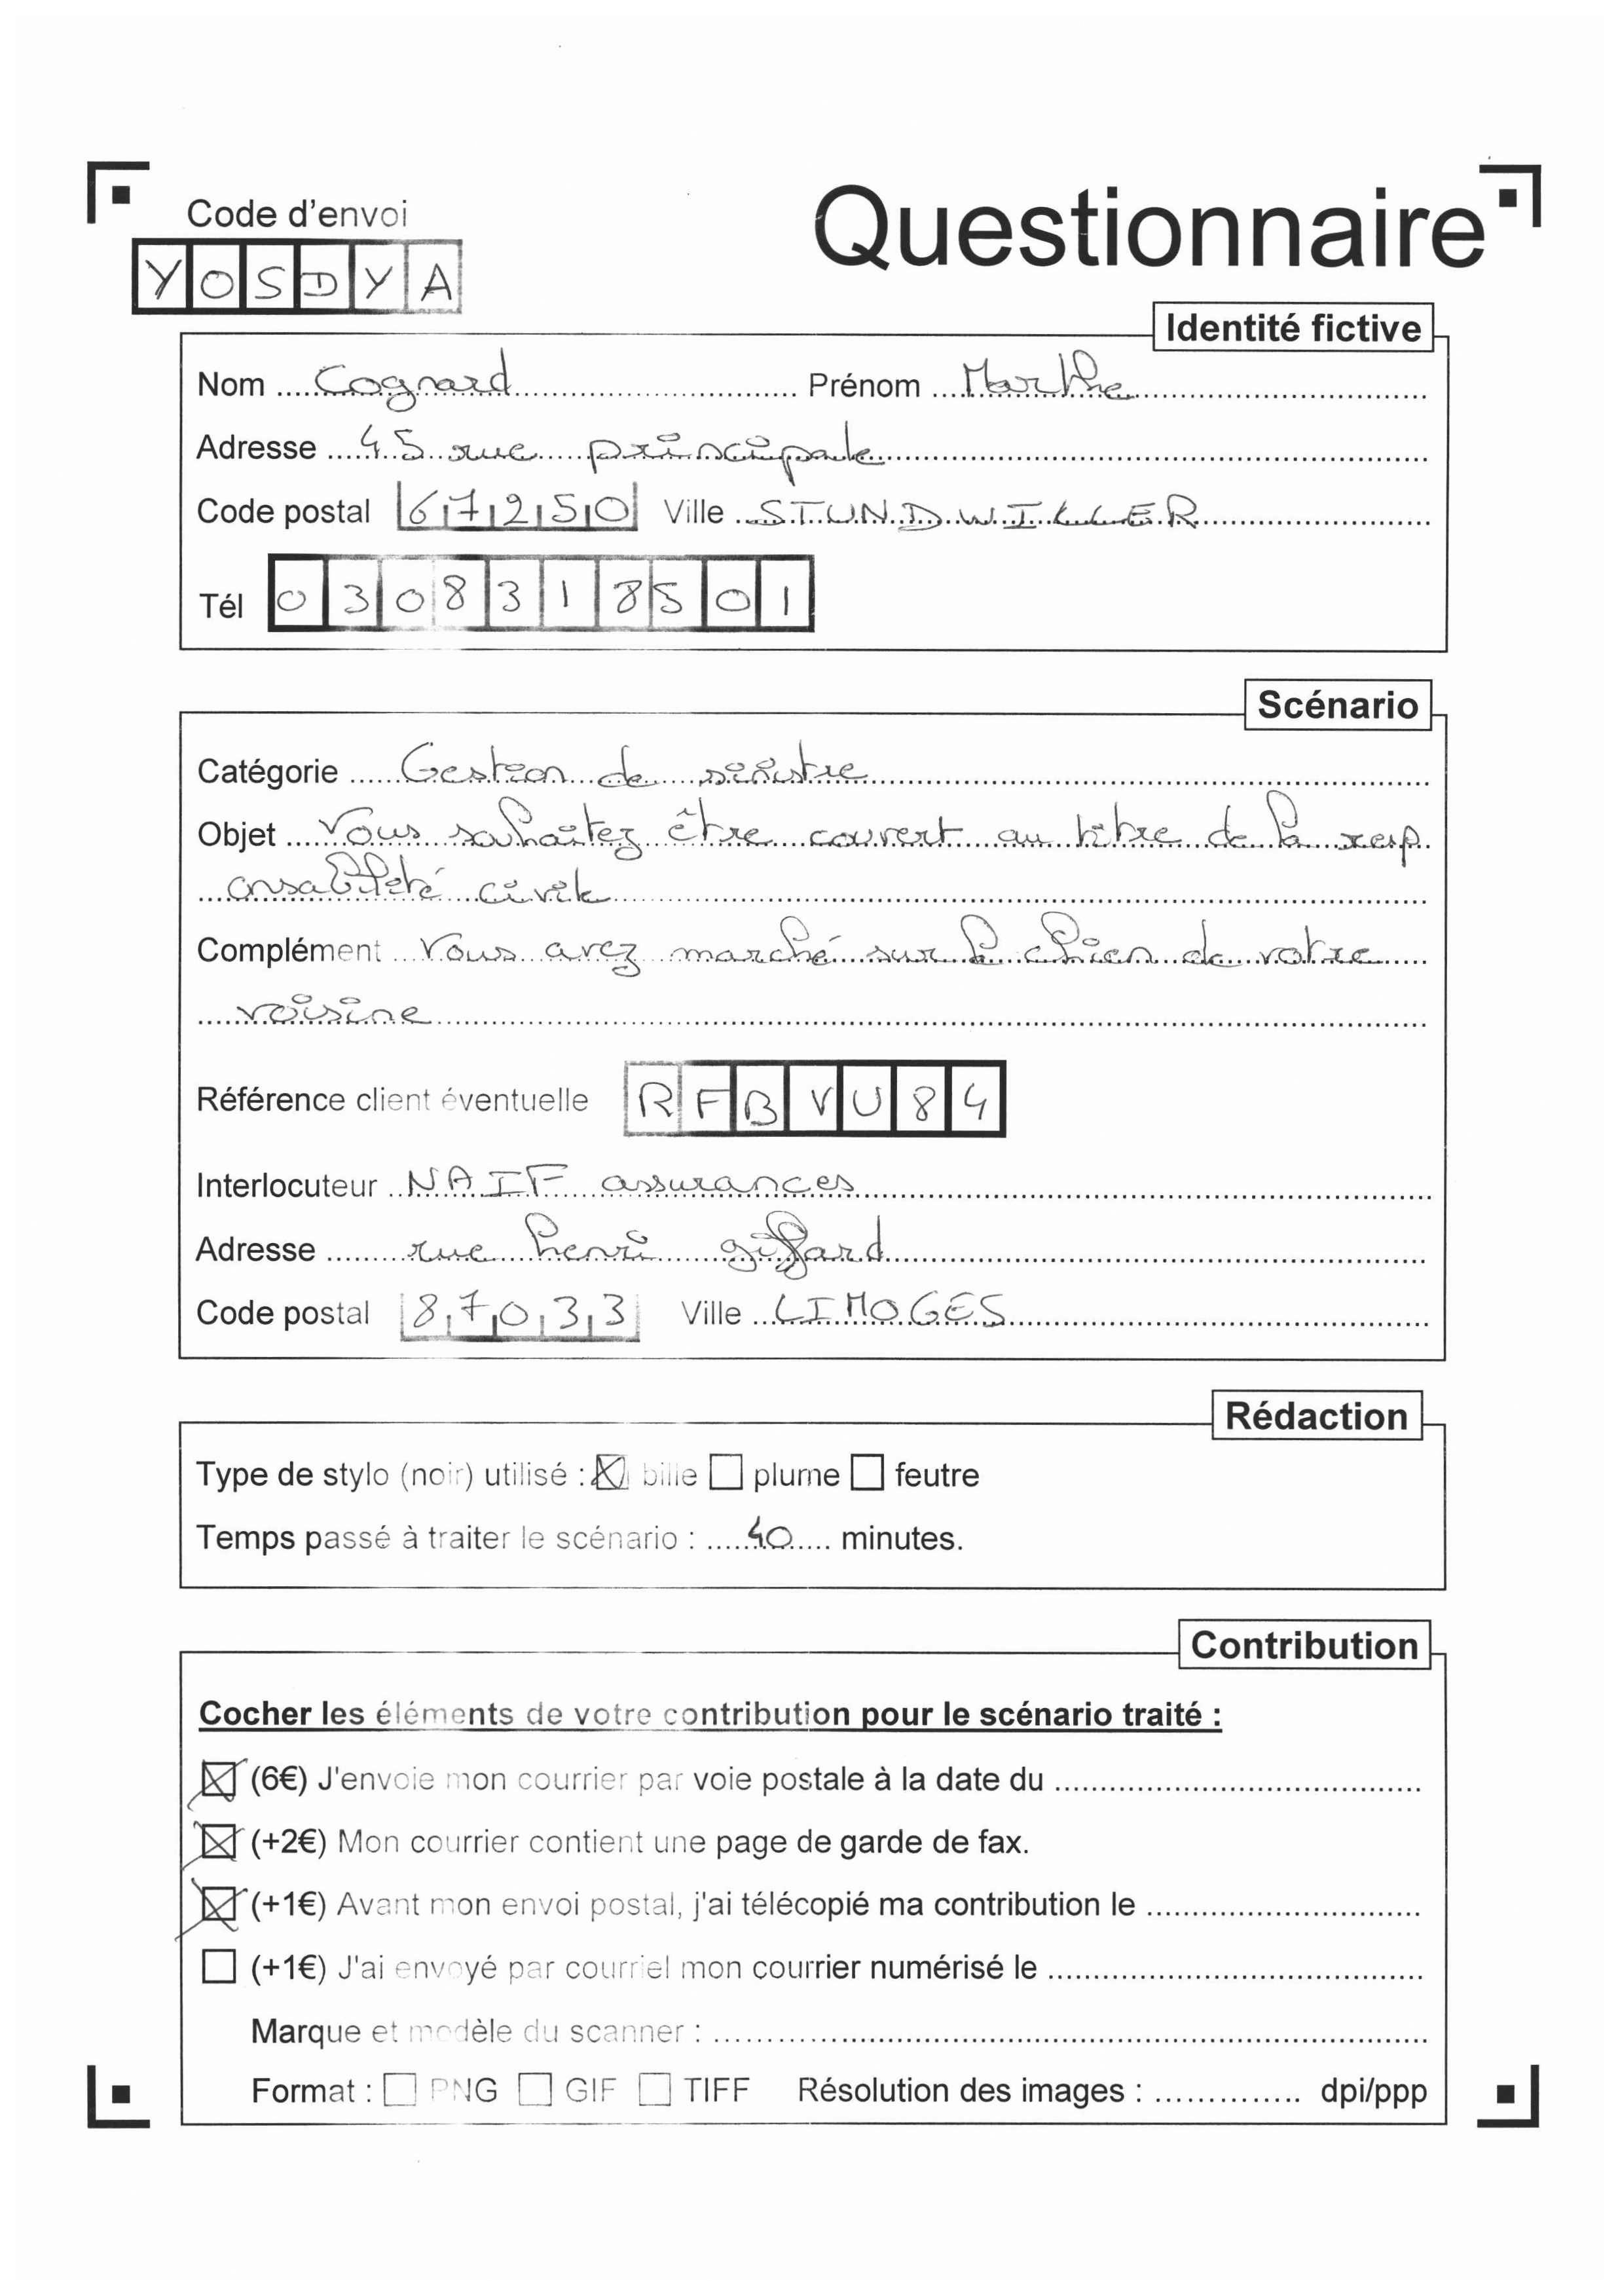 Code d'envoi
Questionnaire
YOSDYA
Identité fictive
Nom Cognard Prénom Marthe
Adresse 45 rue principale
Code postal 67250 Ville STUNDWILLER
Tél 0308318501
Scénario
Catégorie Gestion de sinistre
Objet Vous souhaitez être couvert au titre de la resp
onsabilité civile
Complément Vous avez marché sur le chien de votre
voisine
Référence client éventuelle RFBVU84
Interlocuteur NAIF assurances
Adresse rue henri giffard
Code postal 87033 Ville LIMOGES
Rédaction
Type de stylo (noir) utilisé : bille plume feutre
Temps passé à traiter le scénario : 40 minutes.
Contribution
Cocher les éléments de votre contribution pour le scénario traité :
(6€) J'envoie mon courrier par voie postale à la date du
(+2€) Mon courrier contient une page de garde de fax.
(+1€) Avant mon envoi postal, j'ai télécopié ma contribution le
(+1€) J'ai envoyé par courriel mon courrier numérisé le
Marque et modèle du scanner :
Format : PNG GIF TIFF Résolution des images : dpi/ppp